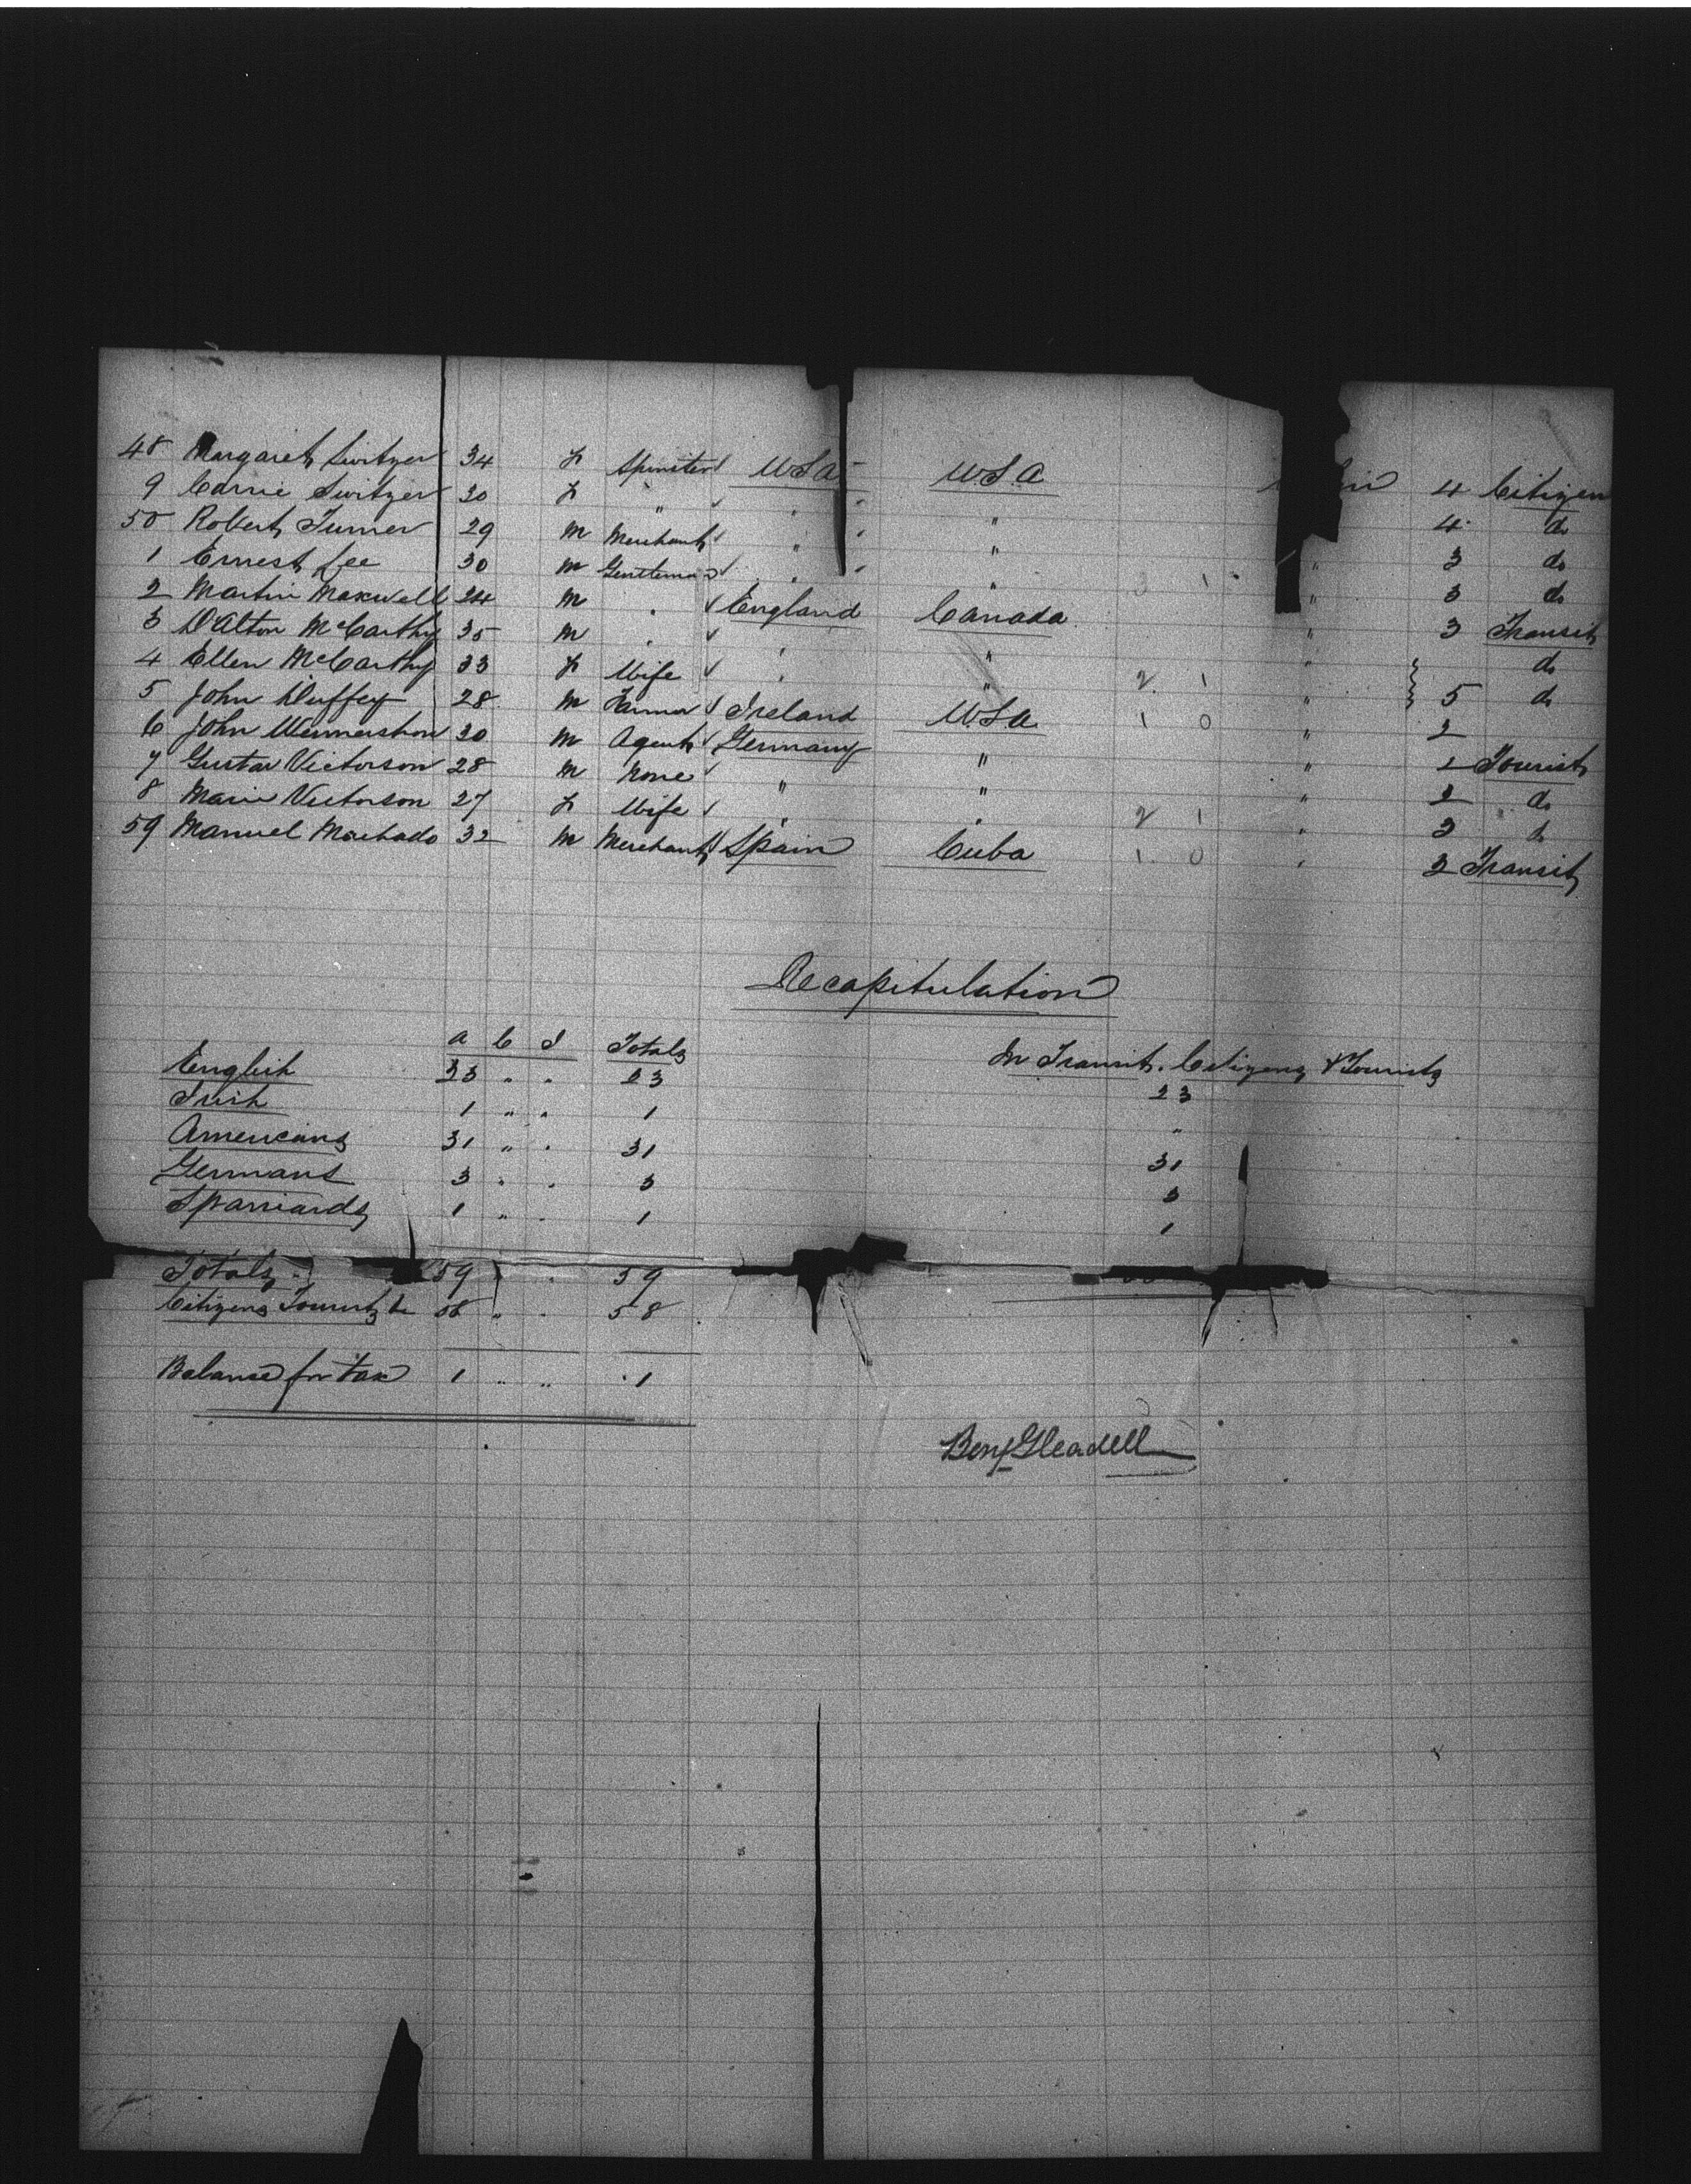 48 Margaret Switzer 34 f Spinster √ U.S.A. U.S.A 4 Citizen
9 Carrie Switzer 30 f " √ " " 4 do
50 Robert Turner 29 m Merchant √ " " " 3 do
1 Ernest Lee 30 m Gentleman √ " " 3 1 " 3 do
2 Martin Maxwell 24 m " √ England Canada " 3 Transit
3 D'Alton McCarthy 35 m " √ " " " do
4 Ellen McCarthy 33 f Wife √ " " 2 1 " 5 do
5 John Duffey 28 m Farmer √ Ireland U.S.A 1 0 " 2
6 John 30 m Agent √ Germany " " 2 Tourist
7 Gustav Victorson 28 m None √ " " " 2 do
8 Marie Victorson 27 f Wife √ " " 2 1 " 3 do
59 Manuel Machado 32 m Merchant √ Spain Cuba 1 0 " 2 Transit
Recapitulation
A C I Totals In Transit. Citizens & Tourists
English 23 " " 23 23
Irish 1 " " 1 "
Americans 31 " " 31 31
Germans 3 " " 3 3
Spaniards 1 " " 1 1
Totals 59 " 59
Citizens Tourists &c 58 " " 58
Balance for tax 1 " " 1
Benj Gleadell